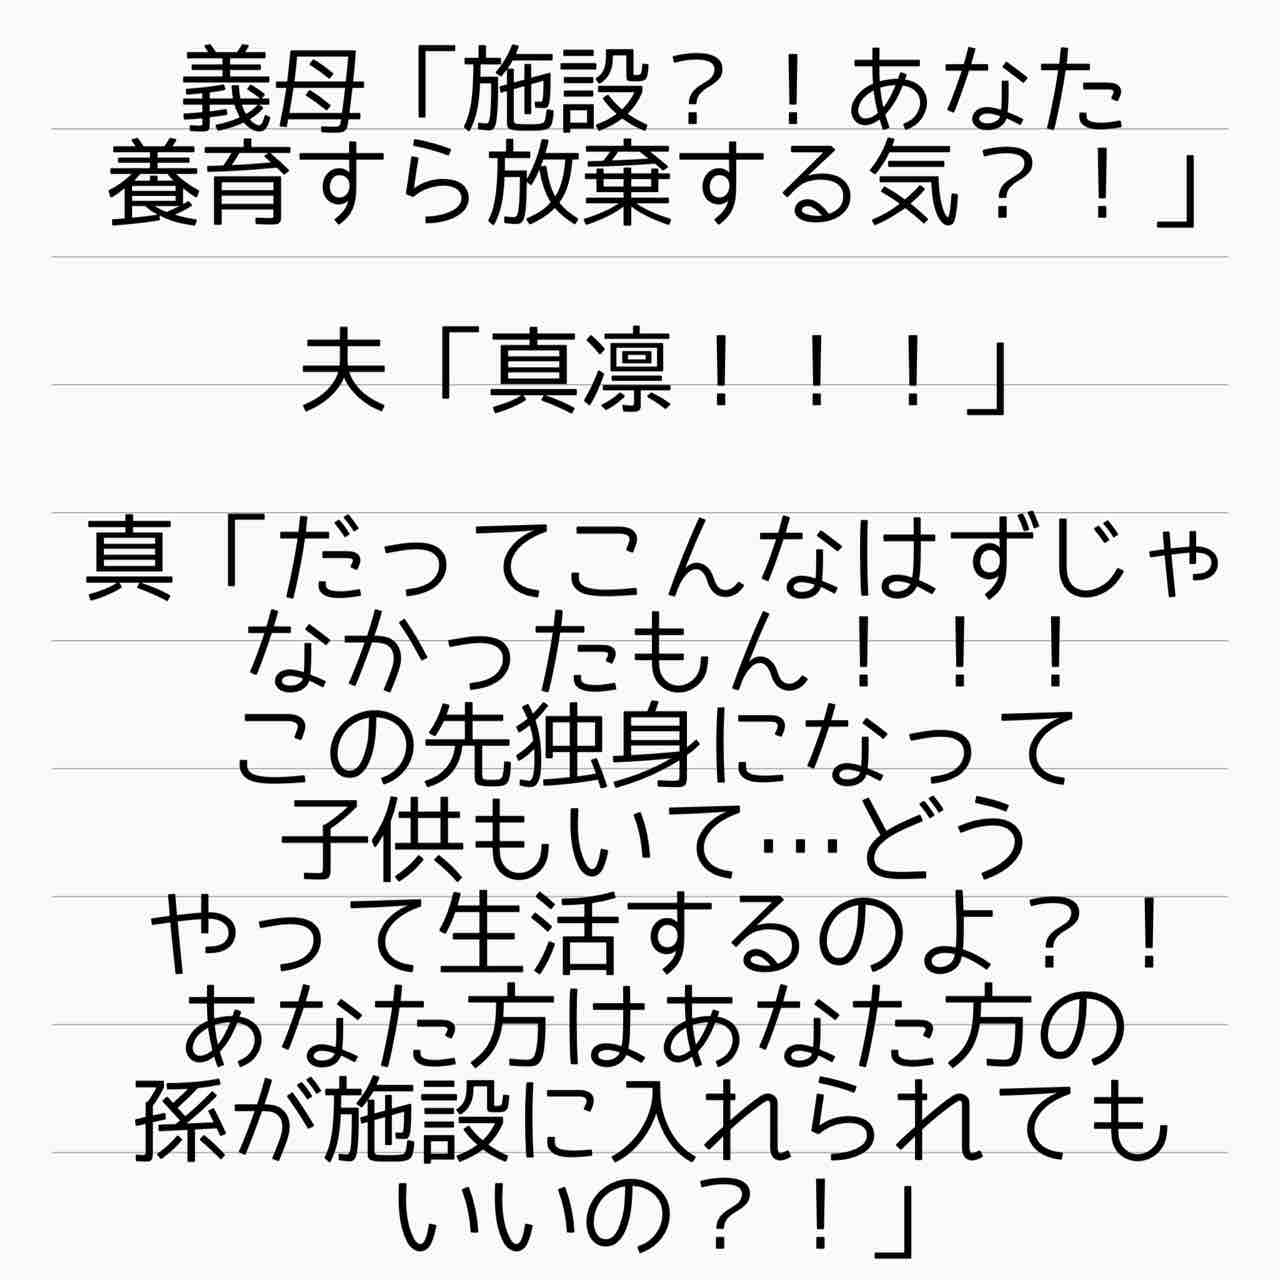 義母「施設？！あなた
養育すら放棄する気？！」
夫「真凛！！！」
真「だってこんなはずじゃ
なかったもん！！！
この先独身になって
子供もいて…どう
やって生活するのよ？！
あなた方はあなた方の
孫が施設に入れられても
いいの？！」